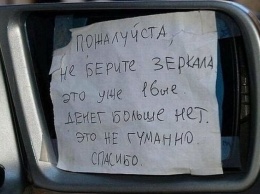 ПОЖАЛУЙСТА,
НЕ БЕРИТЕ ЗЕРКАЛА
ЭТО УЖЕ 14ые.
ДЕНЕГ БОЛЬШЕ НЕТ.
ЭТО НЕ ГУМАННО.
СПАСИБО.